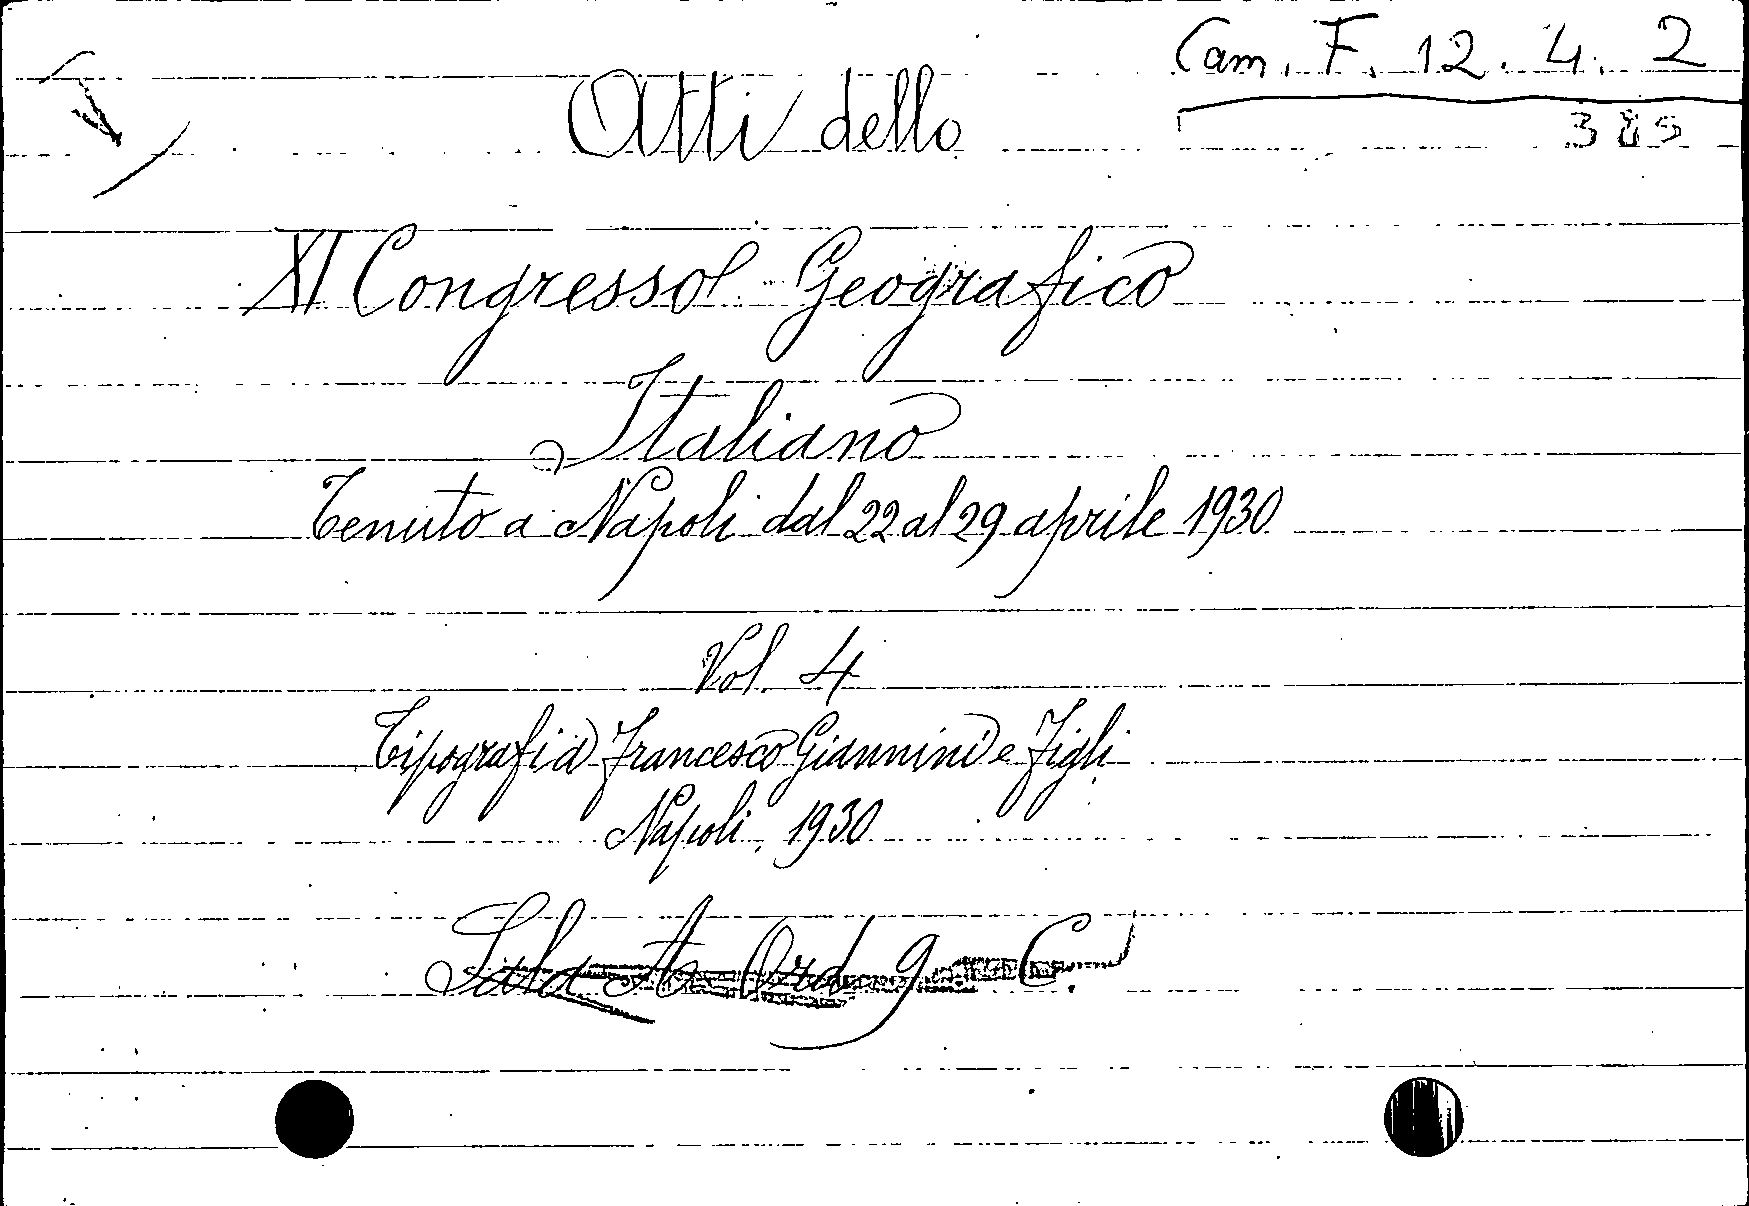 Cam. F. 12. 4. 2
385
Atti dello
XI Congresso Geografico
Italiano
Tenuto a Napoli dal 22 al 29 aprile 1930
Vol. 4
Tipografia Francesco Giannini e Figli
Napoli, 1930
Sala A Ord. 9 C.